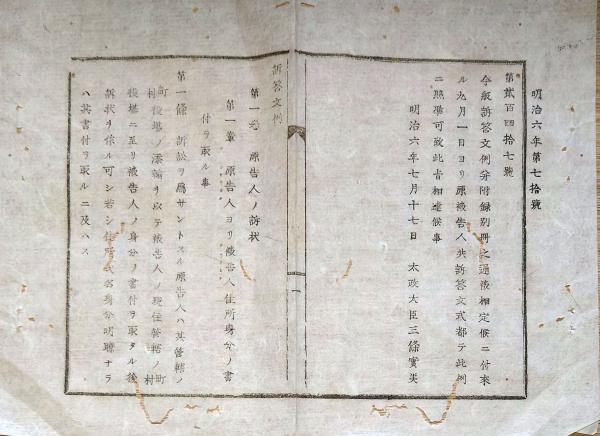 明治六年第七拾號
第貳百四拾七號
今般訴答文例并附録別冊之通被相定候ニ付來
ル九月一日ヨリ原被告人共訴答文式都テ此例
ニ照準可致此旨相達候事
明治六年七月十七日 太政大臣三條實美
訴答文例
第一卷 原告人ノ訴状
第一章 原告人ヨリ被告人住所身分ノ書
付ヲ取ル事
第一條 訴訟ヲ爲サントスル原告人ハ其管轄ノ
町村役場ノ添翰ヲ以テ被告人ノ現住管轄ノ町村
役場ニ至リ被告人ノ身分ノ書付ヲ取タル後
訴状ヲ作ル可シ若シ住所氏名身分明瞭ナラ
ハ其書付ヲ取ルニ及ハス
一